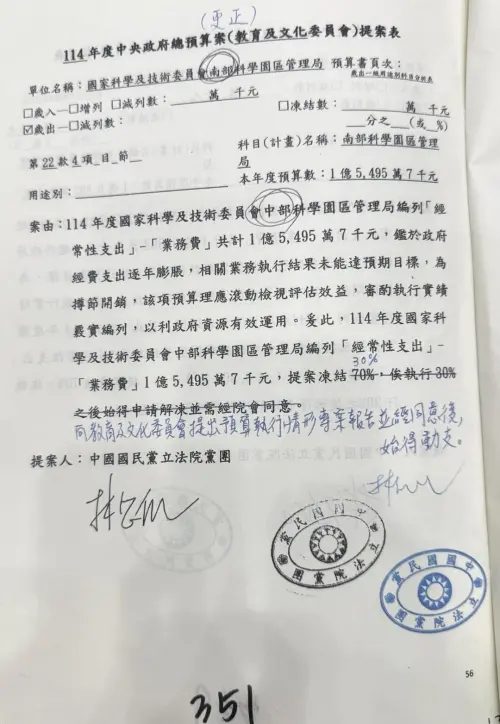 (更正)
114年度中央政府總預算案(教育及文化委員會)提案表
單位名稱：國家科學及技術委員會南部科學園區管理局 預算書頁次：
歲出一級用途別科目分析表
□歲入—□增列 □減列數： 萬 千元 □凍結數： 萬 千元
☑歲出—□減列數： 分之 (或 %)
第22款4項_目_節 科目(計畫)名稱：南部科學園區管理
局
用途別： 本年度預算數：1億5,495萬7千元
案由：114年度國家科學及技術委員會中部科學園區管理局編列「經
常性支出」-「業務費」共計1億5,495萬7千元，鑑於政府
經費支出逐年膨脹，相關業務執行結果未能達預期目標，為
撙節開銷，該項預算理應滾動檢視評估效益，審酌執行實績
覈實編列，以利政府資源有效運用。爰此，114年度國家科
學及技術委員會中部科學園區管理局編列「經常性支出」-
30%
「業務費」1億5,495萬7千元，提案凍結70%，俟執行30%
之後始得申請解凍並需經院會同意。
向教育及文化委員會提出預算執行情形專案報告並經同意後，
始得動支。
提案人：中國國民黨立法院黨團
中國國民黨
立法院黨團
中國國民黨
立法院黨團
56
351